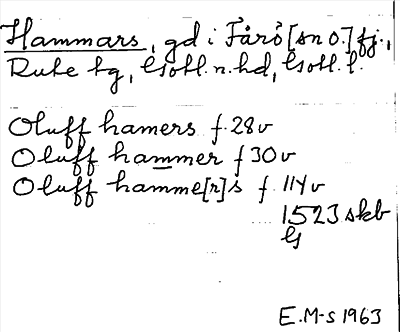 Hammars, gd i Fårö [sn o.] fj.,
Rute tg, Gotl. n. hd, Gotl. l.
Oluff hamers f. 28v
Oluff hammer f 30v
Oluff hamme[r]s f. 114v
1523 skb
G
E. M-s 1963